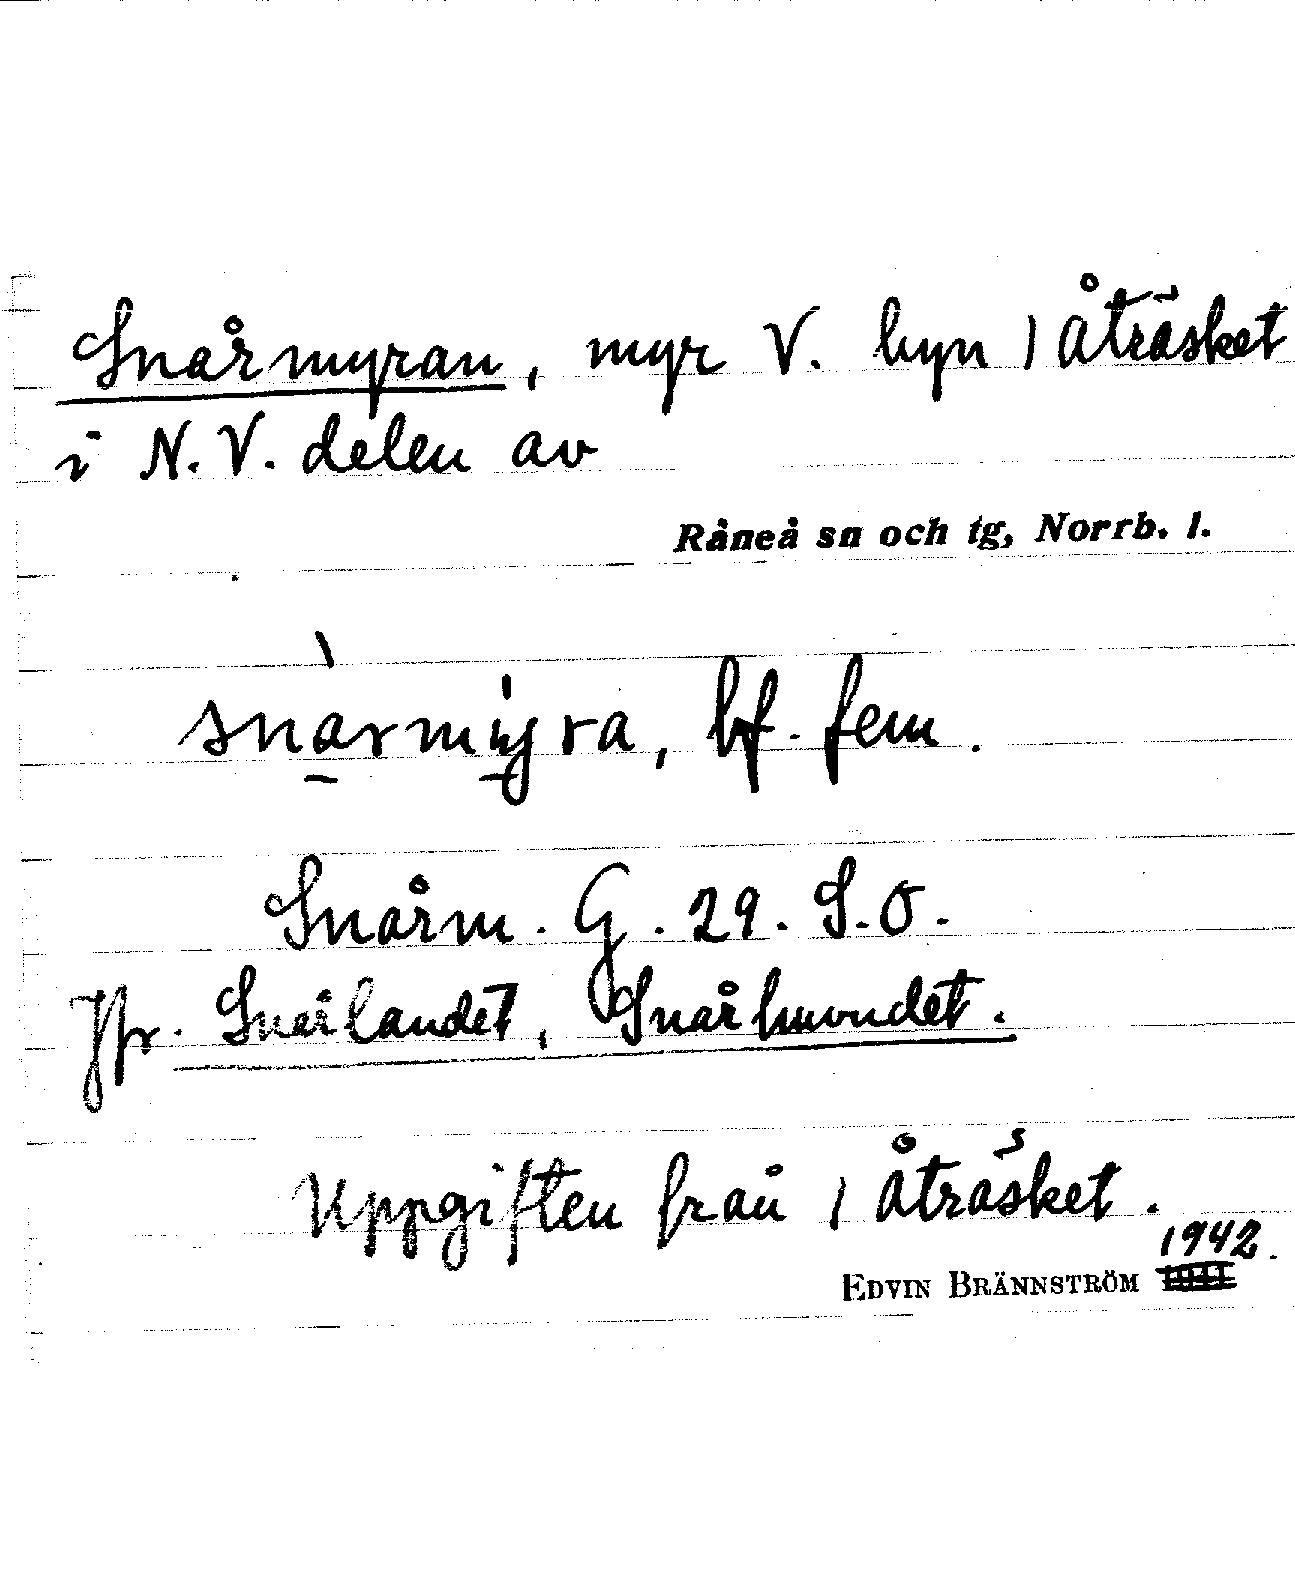 Snårmyran, myr V. byn 1 Åträsket
i N.V. delen av
Råneå sn och tg, Norrb. l.
snàrmyra, bf. fem.
Snårm. G. 29. S.O.
Jfr. Snårlandet, Snårhuvudet.
Uppgiften från 1 Åträsket.
1942.
EDVIN BRÄNNSTRÖM